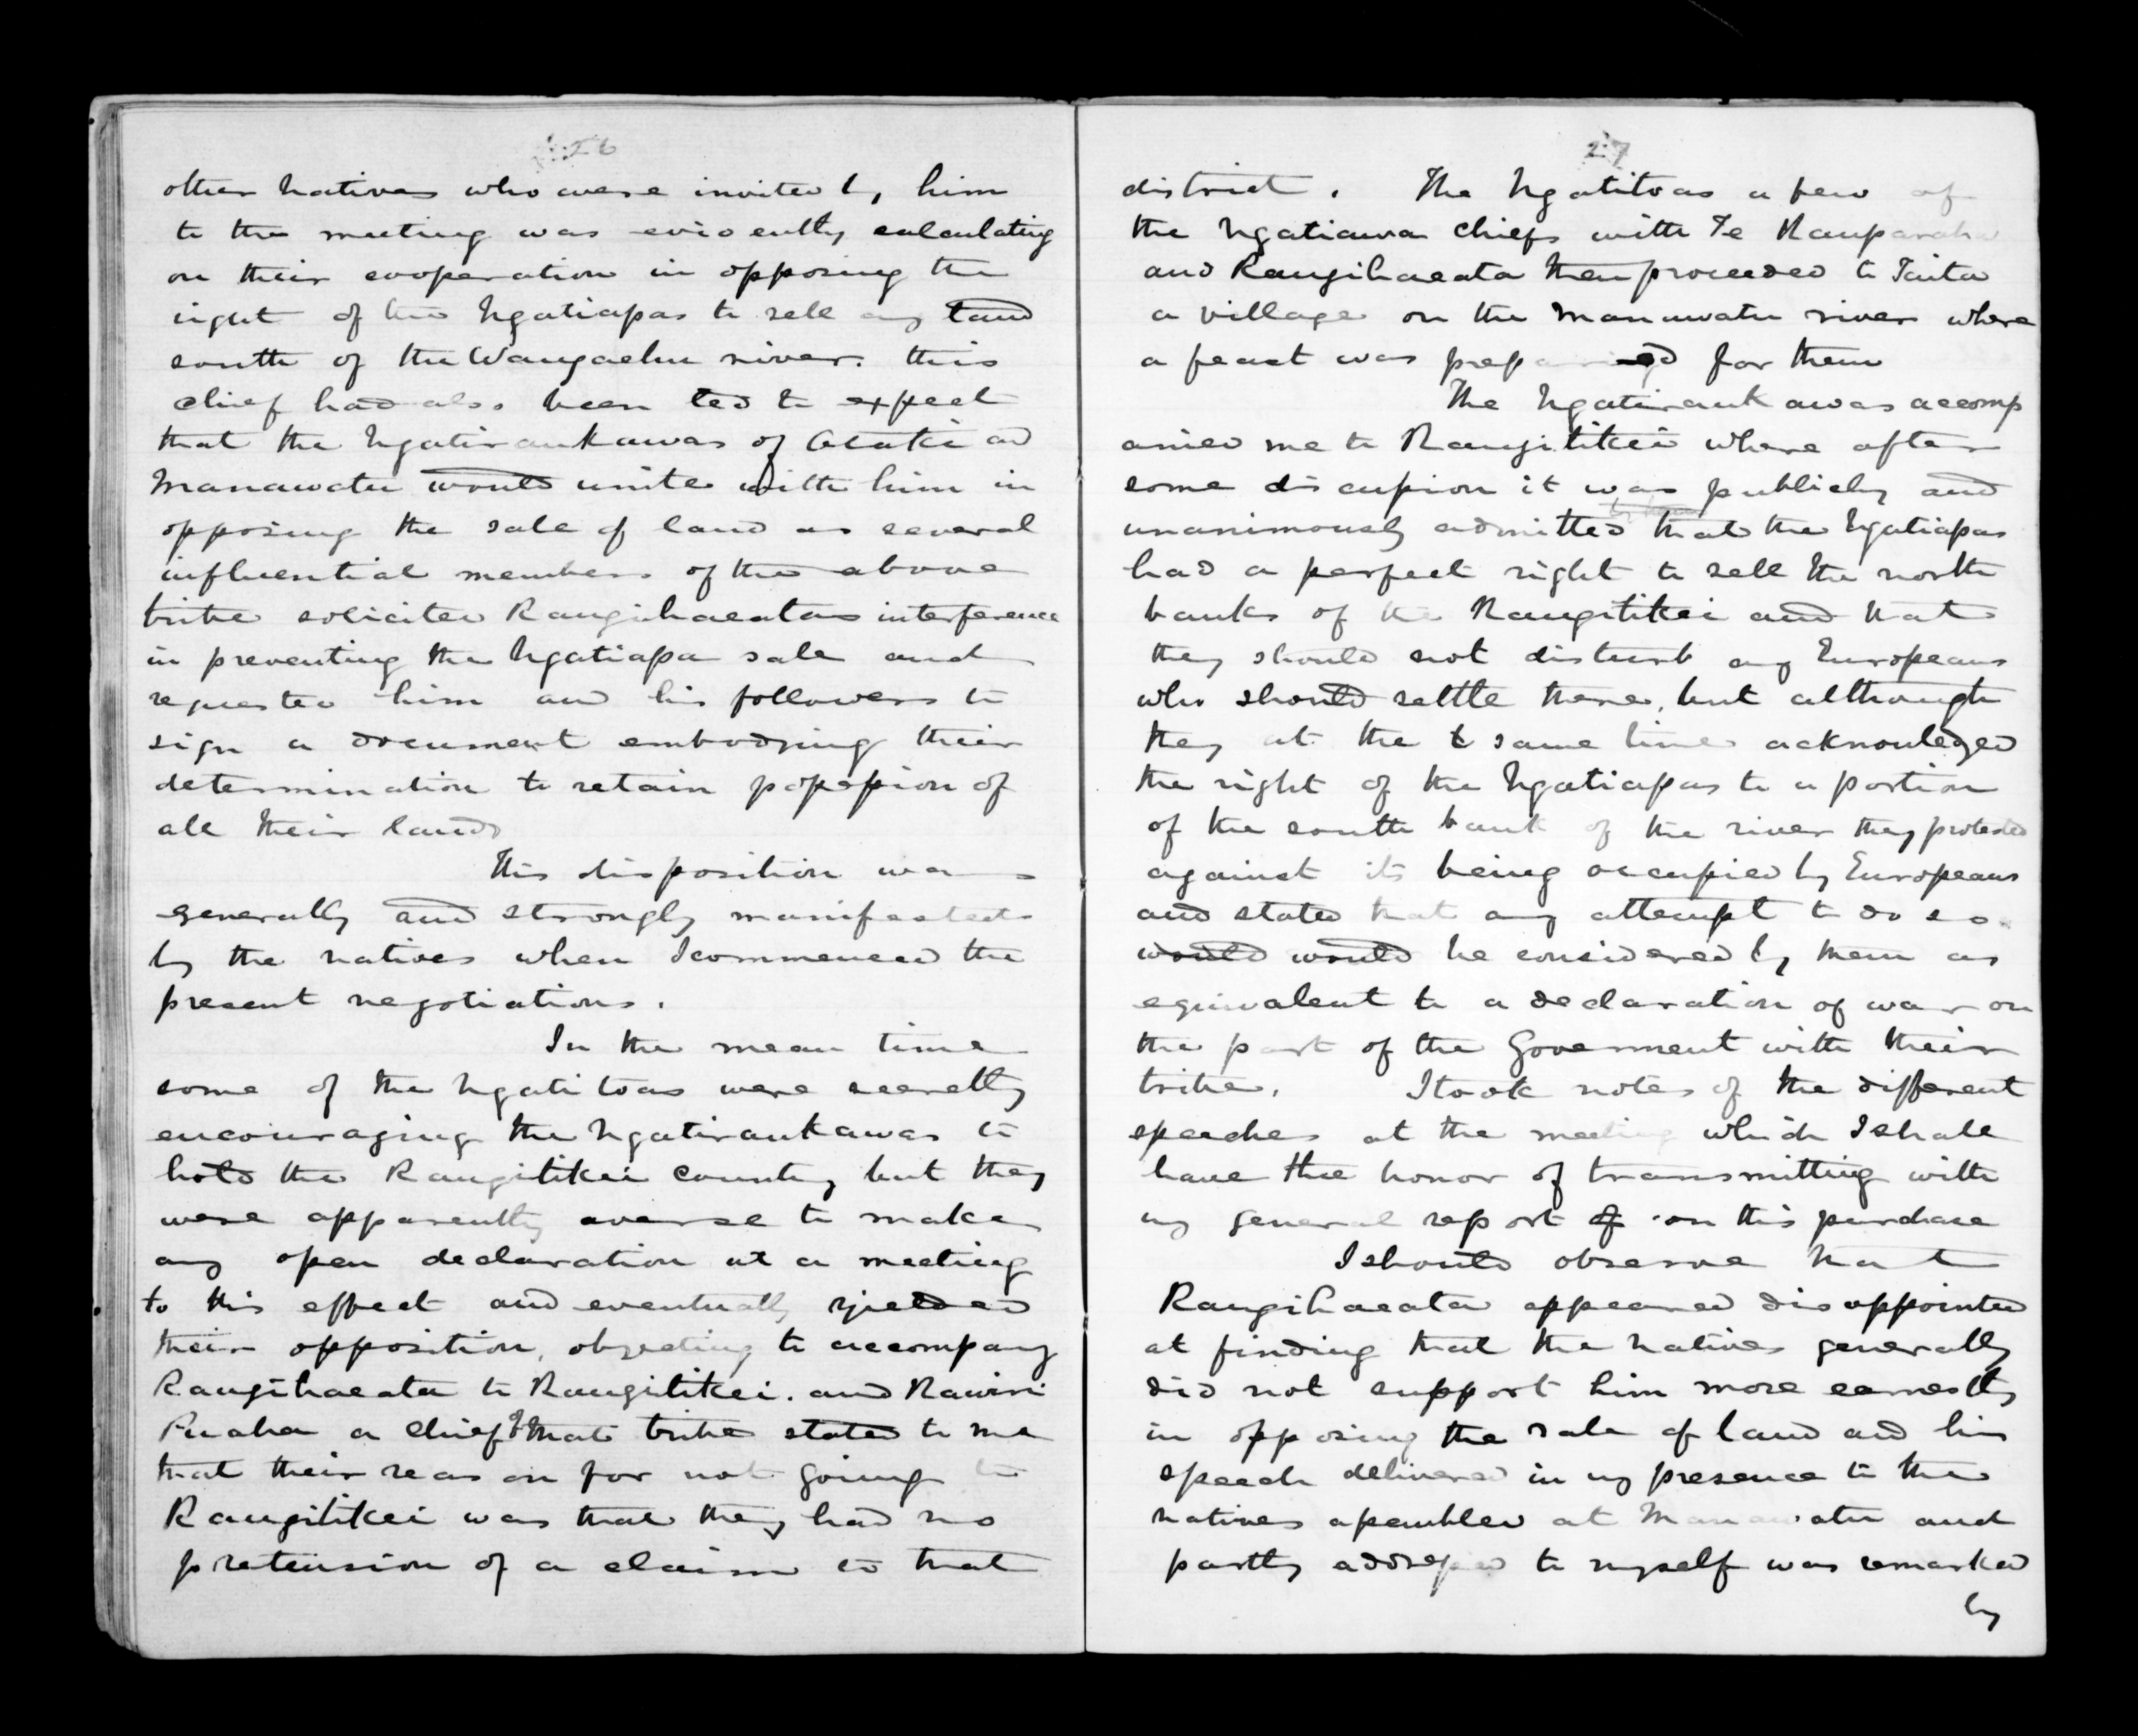 26
other natives who were invited by him
to the meeting was evidently calculating
on their cooperation in opposing the
right of the Ngatiapas to sell any land
south of the Wangaehu river. this
chief had also been led to expect
that the Ngatiraukawas of Otaki and
Manawatu would unite with him in
opposing the sale of land as several
influential members of the above
tribe solicited Rangihaeatas interference
in preventing the Ngatiapa sale and
requested him and his followers to
sign a document embodying their
determination to retain possession of
all their lands
This disposition was
generally and strongly manifested
by the natives when I commenced the
present negotiations.
In the mean time
some of the Ngatitoas were secretly
encouraging the Ngatiraukawas to
hold the Rangitikei country but they
were apparently averse to make
any open declaration at a meeting
to this effect and eventually yielded
their opposition, objecting to accompany
Rangihaeata to Rangitikei. and Rawiri
Puaha a chief of that tribe stated to me
that their reason for not going to
Rangitikei was that they had no
pretension of a claim to that
27
district. The Ngatitoas a few of
the Ngatiawa chiefs with Te Rauparaha
and Rangihaeata then proceeded to Taita
a village on the Manawatu river where
a feast was prepared for them
The Ngatiraukawas accomp
anied me to Rangitikei where after
some discussion it was publicly and
unanimously admitted that the Ngatiapas
had a perfect right to sell the north
banks of the Rangitikei and that
they should not disturb any Europeans
who should settle there, but although
they at the t same time acknowledged
the right of the Ngatiapas to a portion
of the south bank of the river they protested
against its being occupied by Europeans
and stated that any attempt to do so.
would would be considered by them as
equivalent to a declaration of war on
the part of the Goverment with their
tribe. I took notes of the different
speeches at the meeting which I shall
have thee honor of transmitting with
my general report of on this purchase
I should observe that
Rangihaeata appeared disappointed
at finding that the natives generally
did not support him more earnestly
in opposing the sale of land and his
speech delivered in my presence to the
natives assembled at Manawatu and
partly addressed to myself was remarked
by